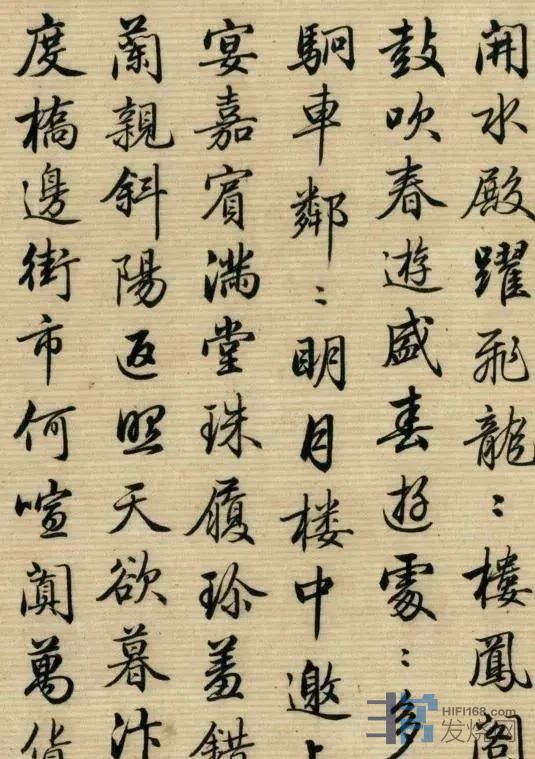 開水殿躍飛龍〻樓鳳閣
鼓吹春遊盛春遊處〻多
駉車鄰〻明月楼中邀
宴嘉賓滿堂珠履珍羞錯
蘭親斜陽返照天欲暮汴
度橋邊街市何喧闐萬貨
HIFI168.com
发烧网